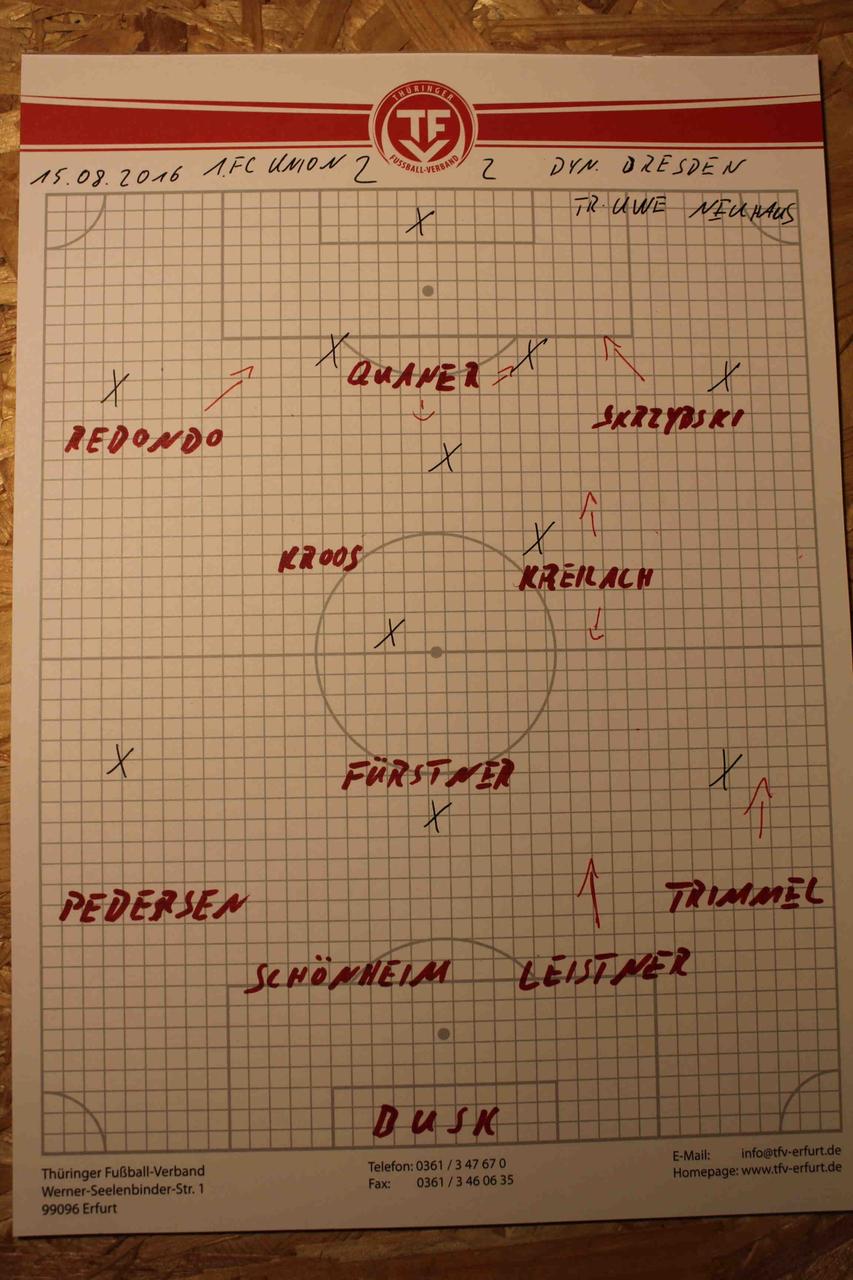 THÜRINGER
TF
FUSSBALL-VERBAND
15.08.2016 1.FC UNION 2 2 DYN. DRESDEN
TR. UWE NEUHAUS
QUANER
REDONDO
SKRZYBSKI
KROOS
KREILACH
FÜRSTNER
PEDERSEN
TRIMMEL
SCHÖNHEIM
LEISTNER
BUSK
Thüringer Fußball-Verband
Werner-Seelenbinder-Str. 1
99096 Erfurt
Telefon: 0361 / 3 47 67 0
Fax: 0361 / 3 46 06 35
E-Mail: info@tfv-erfurt.de
Homepage: www.tfv-erfurt.de